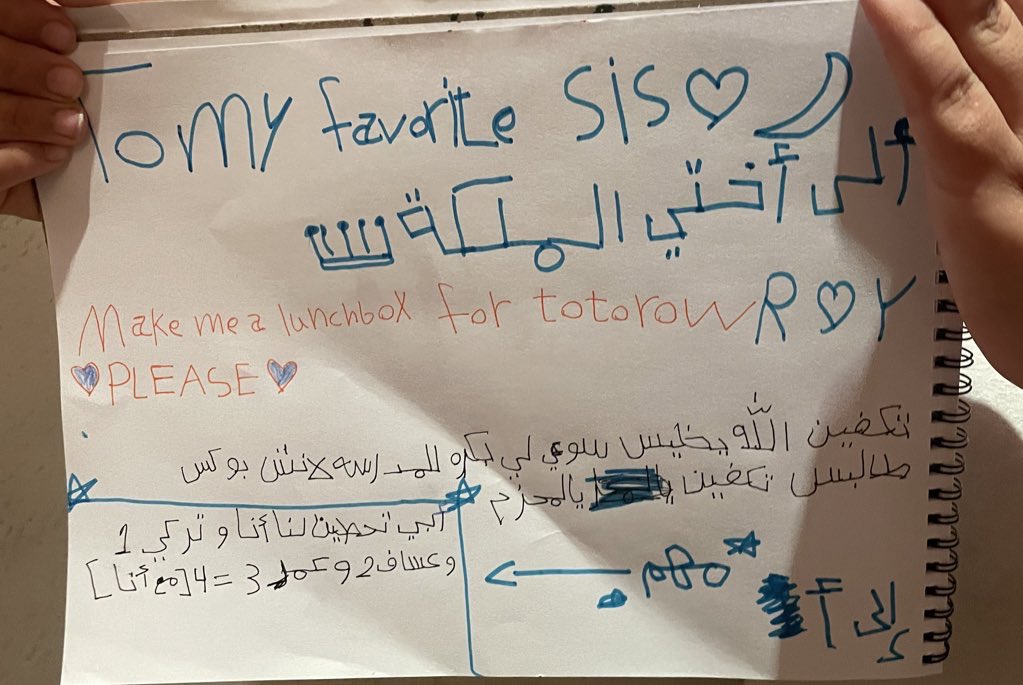 To My favorite Sis ♡
ألى أختي الملكة
Make me a lunchbox for totorow R ♡ Y
♡ PLEASE ♡
تكفين الله يخليس سوي لي بكره للمدرسه لانش بوكس
طالبس تكفين يالمحزم
ابي تحطين لنا أنا و تركي 1
و عساف 2 و عمر 3 = 4 [مع أنا]
مهم